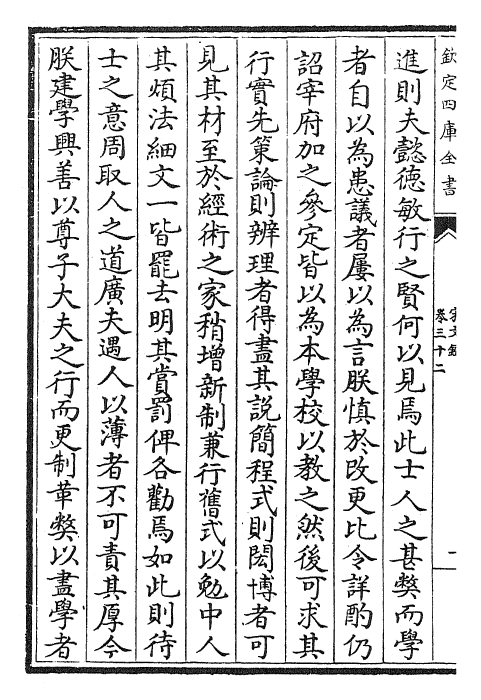 欽定四庫全書
宋文鑑
卷三十二
一
進則夫懿徳敏行之賢何以見焉此士人之甚弊而學
者自以為患議者屢以為言朕慎於改更比令詳酌仍
詔宰府加之參定皆以為本學校以教之然後可求其
行實先策論則辨理者得盡其説簡程式則閎博者可
見其材至於經術之家稍增新制兼行舊式以勉中人
其煩法細文一皆罷去明其賞罰俾各勸焉如此則待
士之意周取人之道廣夫遇人以薄者不可責其厚今
朕建學興善以尊子大夫之行而更制革弊以盡學者